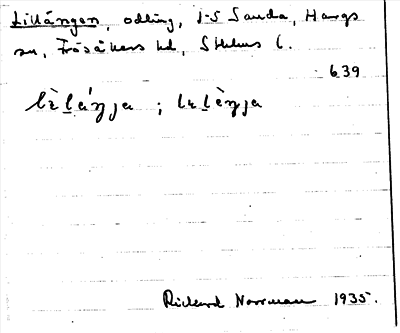 Lillängen, odling, J-S Sanda, Hargs
sn, Frösåkers hd, Sthlms l.
639
lèláŋja ; lelèŋja
Rickard Norrman 1935.